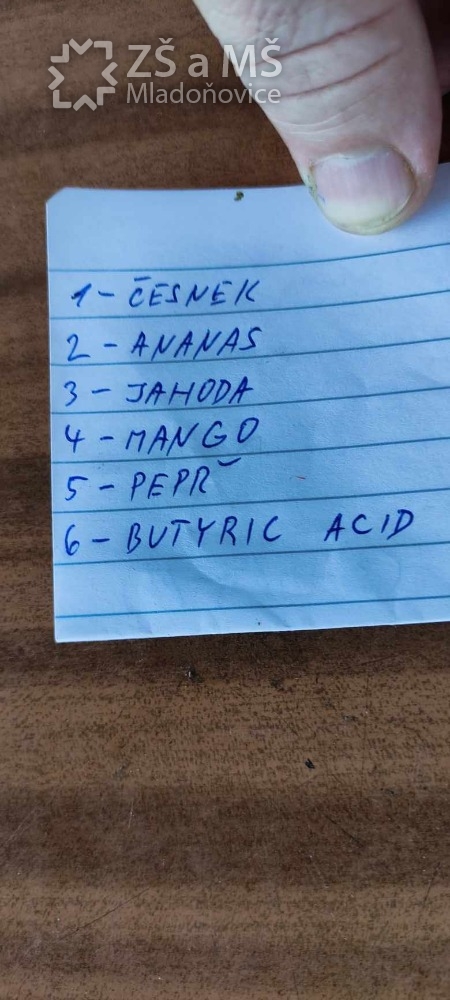 ZŠ a MŠ
Mladoňovice
1 - ČESNEK
2 - ANANAS
3 - JAHODA
4 - MANGO
5 - PEPŘ
6 - BUTYRIC ACID